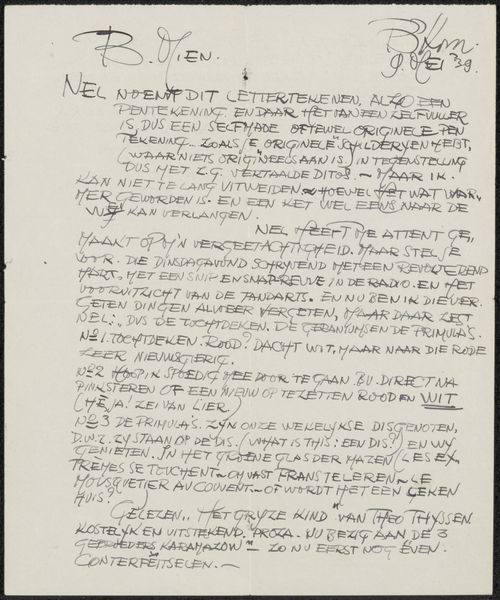 B. Mien.
9 Mei '39.
NEL NOEMT DIT LETTERTEKENEN, ALZO EEN
PENTEKENING. EN DAAR HET VAN EEN ZELFVULLER
IS, DUS EEN SELFMADE OFTEWEL ORIGINELE PEN
TEKENING.. ZOALS JE ORIGINELE SCHILDERYEN HEBT,
(WAAR NIETS ORIGINEELS AAN IS) IN TEGENSTELLING
DUS MET Z.G. VERTAALDE DITOS. ~ MAAR IK
KAN NIET TE LANG UITWEIDEN ~ HOEWEL HET WAT WAR,
MER GEWORDEN IS. EN EEN KET WEL EENS NAAR DE
WEI KAN VERLANGEN.
NEL HEEFT ME ATTENT GE,,
MAAKT OP M'N VERGEETACHTIGHEID. MAAR STEL JE
VOOR. DIE DINSDAGAVOND SCHRYVEND MET EEN REVOLTEREND
HART, MET EEN SNIP EN SNAPREVUE IN DE RADIO. EN HET
VOORUITZICHT VAN DE TANDARTS. EN NU BEN IK DIE VER.
GETEN DINGEN ALWEER VERGETEN, MAAR DAAR ZEGT
NEL:,, DUS DE TOCHTDEKEN. DE GERANIUMS EN DE PRIMULA'S.
No 1. TOCHTDEKEN. ROOD? DACHT WIT. MAAR NAAR DIE RODE
ZEER NIEUWSGIERIG.
No 2 HOOP IK SPOEDIG MEE DOOR TE GAAN BV. DIRECT NA
PINKSTEREN OF EEN NIEUW OP TE ZETTEN ROOD EN WIT
(HÈ JA! ZEI VAN LIER.)
No 3 DE PRIMULA'S. ZYN ONZE WEKELYKSE DISGENOTEN,
D.W.Z. ZY STAAN OP DE DIS. (WHAT IS THIS: EEN DIS?) EN WY
GENIETEN. IN HET GROENE GLAS DER MAZEN (LES EX,
TRÊMES SE TOUCHENT ~ OM VAST FRANS TE LEREN ~ LE
MOUSQUETIER AU COUVENT ~ OF WORDT HET EEN LEKEN
HUIS?)
GELEZEN,, HET GRYZE KIND" VAN THEO THYSSEN
KOSTELYK EN UITSTEKEND. PROZA. NU BEZIG AAN DE 3
GEBROEDERS KARAMAZOW" ~ ZO NU EERST NOG EVEN
CONTERFEITSELEN. ~